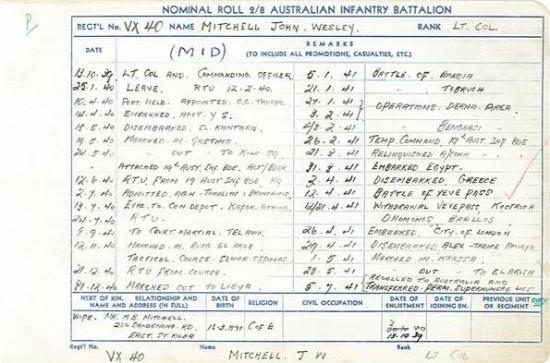 NOMINAL ROLL 2/8 AUSTRALIAN INFANTRY BATTALION
REGT'L No. VX 40 NAME MITCHELL JOHN. WESLEY. RANK LT. COL.
DATE (MID) REMARKS
(TO INCLUDE ALL PROMOTIONS, CASUALTIES, ETC.)
13.10.39 LT. COL AND COMMANDING OFFICER 5.1.41 BATTLE OF BARDIA
25.1.40 LEAVE, RTU 12.2.40. 21.1.41 " TOBRUCH
10.4.40 PORT MELB. APPOINTED O.C. TROOPS 27.1.41 OPERATIONS DERNA AREA
14.4.40 EMBARKED HMT. Y5 3.2.41
18.5.40 DISEMBARKED EL KANTARA 4/8.2.41 " BENGHASI
19.5.40 MARCHED IN GUSTARD 26.2.41 TEMP. COMMAND, 19th AUST INF BDE
24.5.40 " OUT TO KILO 89 21.3.41 RELINQUISHED A/COMM "
ATTACHED 19th AUST. INF BDE, ACT/BDR 31.3.41 EMBARKED EGYPT.
12.6.40 RTU FROM 19 AUST INF BDE HQ 2.4.41 DISEMBARKED GREECE
2.7.40 ADMITTED AGH 12.4.41 BATTLE OF VEVE PASS
13.7.40 EVAC. TO CON DEPOT 12/21.4.41 WITHDRAWAL VEVE PASS,
24.7.40 R.T.U. DHOMONOS BRALLOS
9.40 TO COURT MARTIAL TEL AVIV. 26.4.41 EMBARKED "CITY OF LONDON
12.11.40 MARCHED IN BURG EL ARAB 29.4.41 DISEMBARKED ALEX
TACTICAL COURSE SENIOR OFFICERS 1.5.41 MARCHED IN KHASSA
21.12.40 RTU FROM COURSE 28.5.41 " OUT TO EL ARISH
31.12.40 MARCHED OUT TO LIBYA 5.7.41 RECALLED TO AUSTRALIA AND
TRANSFERRED PERM. SUPERNUMERY LIST
NEXT OF KIN, RELATIONSHIP AND NAME AND ADDRESS (IN FULL) DATE OF BIRTH RELIGION CIVIL OCCUPATION DATE OF ENLISTMENT DATE OF JOINING BN. PREVIOUS UNIT or REGIMENT OVER
WIFE. MR. R.E. MITCHELL. C of E
DANDENONG RD. 13.10.39
EAST. ST. KILDA
VX 40 MITCHELL. J W. LT COL